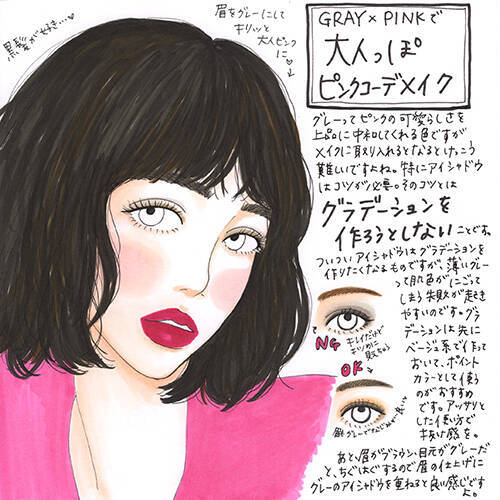 黒髪が好き…♡
眉をグレーにして
キリッと
大人ピンク
に♡
GRAY×PINKで
大人っぽ
ピンクコーデメイク
グレーってピンクの可愛らしさを
上品に中和してくれる色ですが
メイクに取り入れるとなるとけっこう
難しいですよね。特にアイシャドウ
はコツが必要。そのコツとは
グラデーションを
作ろうとしない ことです。
ついついアイシャドウはグラデーションを
作りたくなるものですが、薄いグレー
って肌色がにごって
しまう失敗が起き
やすいのです。グラ
デーションは先に
ベージュ系で作って
おいて、ポイント
カラーとして使う
のがおすすめ
です。アッサリと
した使い方で
抜け感を。
NG
キレイだけど
OK
あと、眉がブラウン、目元がグレーだ
と、ちぐはぐするので眉の仕上げに
グレーのアイシャドウを重ねると良い感じです
よ。